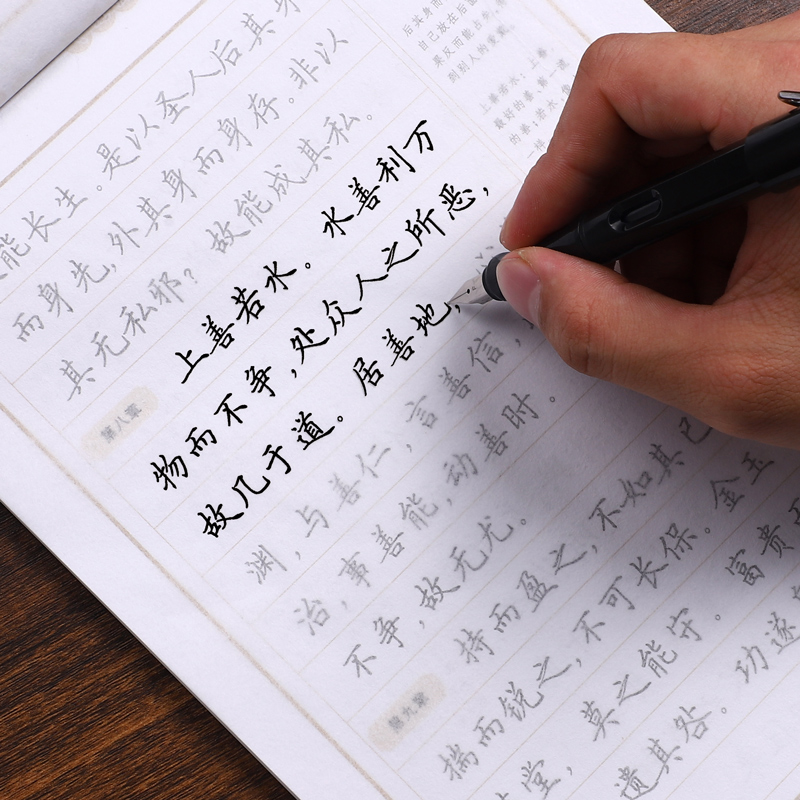 能长生。是以圣人后其身
而身先，外其身而身存。非以
其无私邪？故能成其私。
第八章
上善若水。水善利万
物而不争，处众人之所恶，
故几于道。居善地，
渊，与善仁，言善信，
治，事善能，动善时。
不争，故无尤。
第九章
持而盈之，不如其已
揣而锐之，不可长保。金玉
堂，莫之能守。富贵而
遗其咎。功遂
后其身而
自己放在后
果反而能
上善若水：上善，
最好的善
的善；若水，像